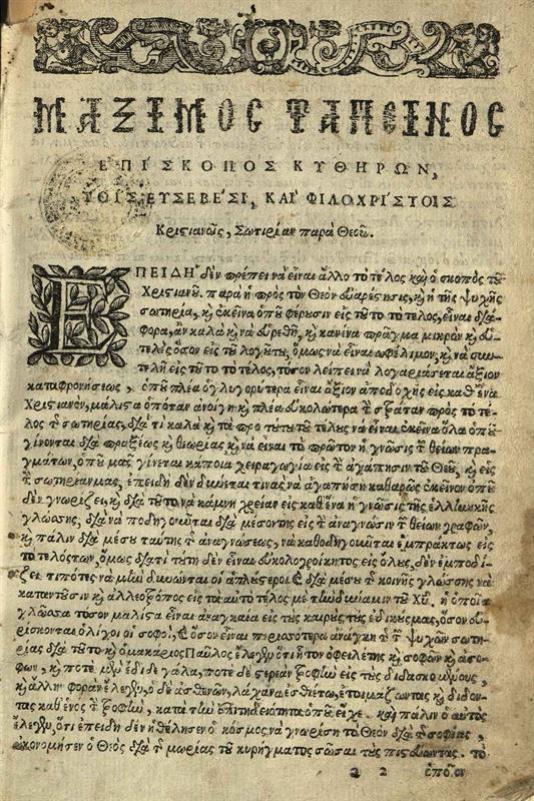 ΜΑΞΙΜΟΣ ΤΑΠΕΙΝΟΣ
ΕΠΙΣΚΟΠΟΣ ΚΥΘΗΡΩΝ,
ΤΟΙΣ ΕΥΣΕΒΕΣΙ, ΚΑΙ ΦΙΛΟΧΡΙΣΤΟΙΣ
Χριστιανοῖς, Σωτηρίαν παρὰ Θεοῦ.
ΕΠΕΙΔΗ δὲν πρέπει νὰ εἶναι ἄλλο τὸ τέλος καὶ ὁ σκοπὸς τοῦ
Χριστιανοῦ. παρὰ ἡ πρὸς τὸν Θεὸν εὐαρέστησις, καὶ ἡ τῆς ψυχῆς
σωτηρία, καὶ ἐκεῖνα ὁποῦ φέρουσιν εἰς τοῦτο τὸ τέλος, εἶναι διά-
φορα, ἂν καλὰ καὶ νὰ εὑρεθῇ, καὶ κανένα πρᾶγμα μικρὸν καὶ εὐ-
τελὲς ὅσον εἰς τοῦ λόγου του, ὅμως νὰ εἶναι ὠφέλιμον, καὶ νὰ συν-
τελῇ εἰς τοῦτο τὸ τέλος, τόσον λείπει νὰ λογαριάσεται ἄξιον
καταφρονήσεως, ὁποῦ πλέα ὀγλυγορύτερα εἶναι ἄξιον ἀποδοχῆς εἰς καθ' ἕνα
Χριστιανὸν, μάλιστα ὁπόταν ἀνοίγῃ καὶ πλέα εὐκολώτερα τὴν στράταν πρὸς τὸ τέ-
λος τῆς σωτηρίας, διατὶ καλὰ καὶ τὰ πρὸ τούτου τοῦ τέλους νὰ εἶναι ἐκεῖνα ὅλα ὁποῦ
γίνονται διὰ πράξεως καὶ θεωρίας καὶ νὰ εἶναι τὸ πρῶτον ἡ γνῶσις τῶν θείων πρα-
γμάτων, ὁποῦ μᾶς γίνεται κάποια χειραγωγία εἰς τὴν ἀγάπησιν τοῦ Θεοῦ, καὶ εἰς
τὴν σωτηρίαν μας, ἐπειδὴ δὲν δύνεταί τινας νὰ ἀγαπήσῃ καθαρῶς ἐκεῖνον ὁποῦ
δὲν γνωρίζει, καὶ διὰ τοῦτο νὰ κάμνῃ χρείαν εἰς καθ' ἕνα ἡ γνῶσις τῆς ἑλληνικῆς
γλώσσης, διὰ νὰ ποδηγοῦνται διὰ μέσον της εἰς τὴν ἀνάγνωσιν τῶν θείων γραφῶν,
καὶ πάλιν διὰ μέσου ταύτης τῆς ἀναγνώσεως, νὰ καθοδηγοῦνται ἐμπράκτως εἰς
τὸ τέλος των, ὅμως διατὶ τούτη δὲν εἶναι εὐκολονόητος εἰς ὅλους, δὲν ἐμποδί-
ζει τίποτες νὰ μὴν δύνωνται οἱ ἁπλούστεροι καὶ διὰ μέσου τῆς κοινῆς γλώσσης νὰ
καταντήσιν καὶ ἀλλεοτρόπως εἰς τὸ αὐτὸ τέλος μὲ τὴν δύναμιν τοῦ Χῦ. ἡ ὁποία
γλῶσσα τόσον μάλιστα εἶναι ἀναγκαία εἰς τοὺς καιρούς τοὺς ἐδικούς μας, ὅσον εὑ-
ρίσκονται ὀλίγοι οἱ σοφοί, καὶ ὅσον εἶναι περισσότερα ἀνάγκη τῆς τῶν ψυχῶν σωτη-
ρίας διὰ τοῦτο καὶ ὁ μακάριος Παῦλος ἔλεγεν ὅτι ἦτον ὀφειλέτης καὶ σοφῶν καὶ ἀσό-
φων, καὶ ποτὲ μὲν ἔδιδε γάλα, ποτὲ δὲ στερεὰν τροφὴν εἰς τοὺς διδασκομένους,
καὶ ἄλλην φορὰν ἔλεγεν, ὁ δὲ ἀσθενῶν, λάχανα ἐσθιέτω, ἑτοιμάζωντας καὶ δίδων-
τας καθ' ἑνὸς τὴν τροφὴν, κατὰ τὴν ἐπιτηδειότητα ὁποῦ εἶχε. καὶ πάλιν ὁ αὐτὸς
ἔλεγεν, ὅτι ἐπειδὴ δὲν ἠθέλησεν ὁ κόσμος νὰ γνωρίσῃ τὸ Θεὸν διὰ τῆς σοφίας,
οἰκονόμησεν ὁ Θεὸς διὰ τῆς μωρίας τοῦ κηρύγματος σῶσαι τοὺς πιστεύοντας. τὸ
a 2 ὁποῖον